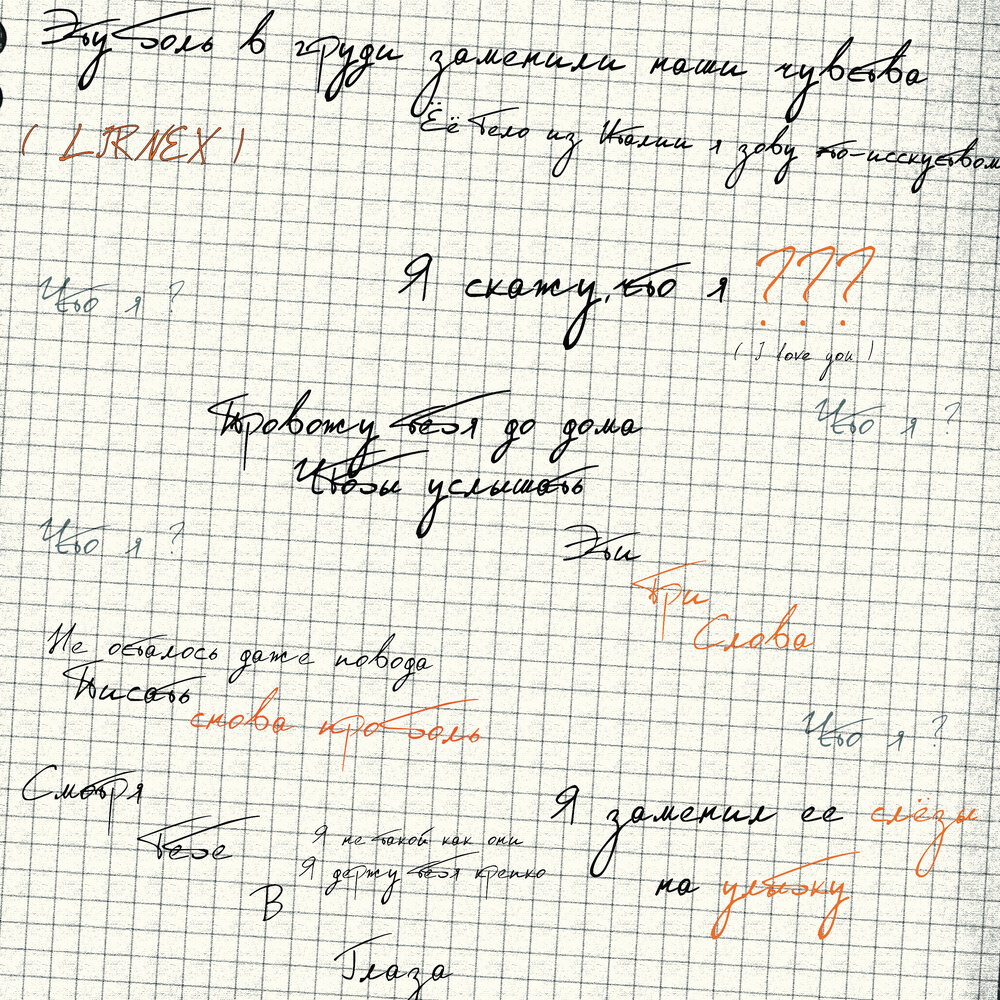 Эту боль в груди заменили наши чувства
( LIRNEX )
Её тело из Италии я зову это-исскуством
Что я ?
Я скажу, что я ???
( I love you )
Провожу тебя до дома
Что я ?
Чтобы услышать
Что я ?
Эти
Три
Слова
Не осталось даже повода
Писать
снова про боль
Что я ?
Смотря
Тебе
В
Глаза
Я не такой как они
Я держу тебя крепко
Я заменил ее слёзы
на улыбку